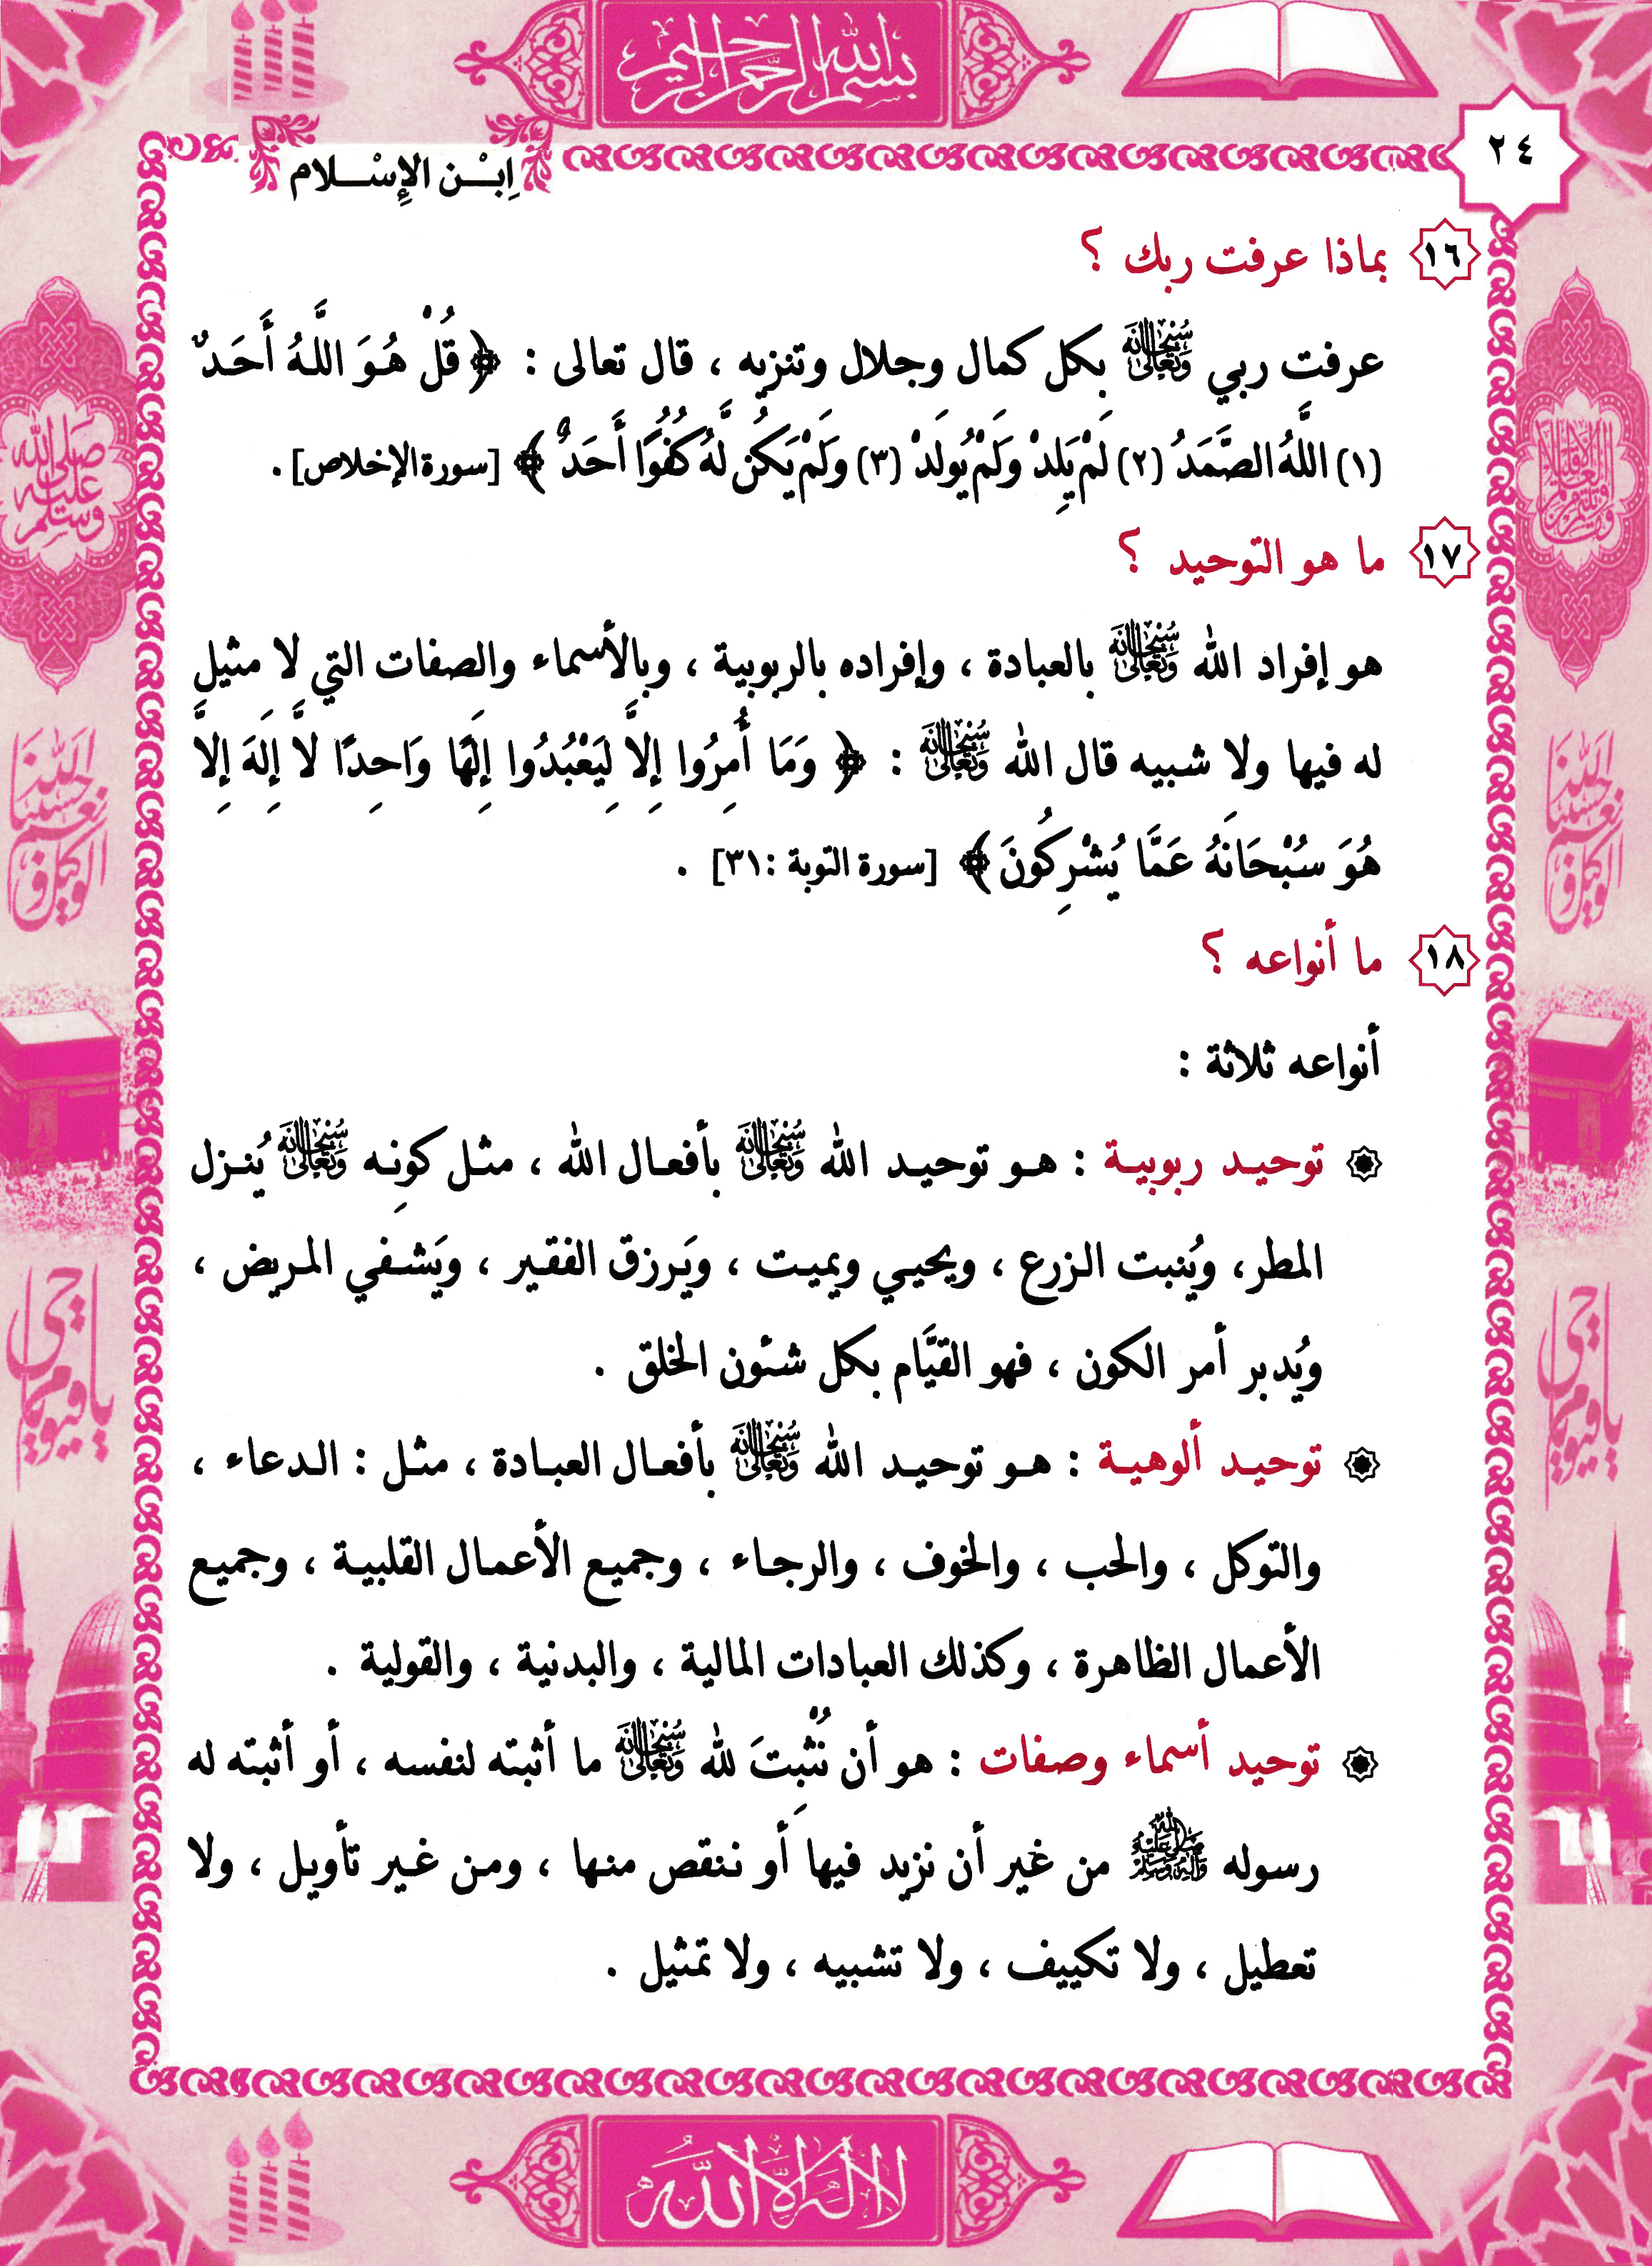 بسم الله الرحمن الرحيم
٢٤
اِبْــن الإِسْــلام
١٦ بماذا عرفت ربك ؟
عرفت ربي سُبْحَانَهُ وَتَعَالَى بكل كمال وجلال وتنزيه ، قال تعالى : ﴿ قُلْ هُوَ اللَّهُ أَحَدٌ
(١) اللَّهُ الصَّمَدُ (٢) لَمْ يَلِدْ وَلَمْ يُولَدْ (٣) وَلَمْ يَكُن لَّهُ كُفُوًا أَحَدٌ ﴾ [سورة الإخلاص] .
١٧ ما هو التوحيد ؟
هو إفراد الله سُبْحَانَهُ وَتَعَالَى بالعبادة ، وإفراده بالربوبية ، وبالأسماء والصفات التي لا مثيل
له فيها ولا شبيه قال الله سُبْحَانَهُ وَتَعَالَى : ﴿ وَمَا أُمِرُوا إِلاَّ لِيَعْبُدُوا إِلَهًا وَاحِدًا لاَّ إِلَهَ إِلاَّ
هُوَ سُبْحَانَهُ عَمَّا يُشْرِكُونَ ﴾ [سورة التوبة :٣١] .
١٨ ما أنواعه ؟
أنواعه ثلاثة :
توحيد ربوبية : هو توحيد الله سُبْحَانَهُ وَتَعَالَى بأفعال الله ، مثل كونِه سُبْحَانَهُ وَتَعَالَى يُنزل
المطر، ويُنبت الزرع ، ويحيي ويميت ، ويَرزق الفقير ، ويَشفي المريض ،
ويُدبر أمر الكون ، فهو القيَّام بكل شئون الخلق .
توحيد ألوهية : هو توحيد الله سُبْحَانَهُ وَتَعَالَى بأفعال العبادة ، مثل : الدعاء ،
والتوكل ، والحب ، والخوف ، والرجاء ، وجميع الأعمال القلبية ، وجميع
الأعمال الظاهرة ، وكذلك العبادات المالية ، والبدنية ، والقولية .
توحيد أسماء وصفات : هو أن نُثْبِتَ لله سُبْحَانَهُ وَتَعَالَى ما أثبته لنفسه ، أو أثبته له
رسوله صلى الله عليه وآله وسلم من غير أن نزيد فيها أو ننقص منها ، ومن غير تأويل ، ولا
تعطيل ، ولا تكييف ، ولا تشبيه ، ولا تمثيل .
لا إله إلا الله
صلى الله عليه وسلم